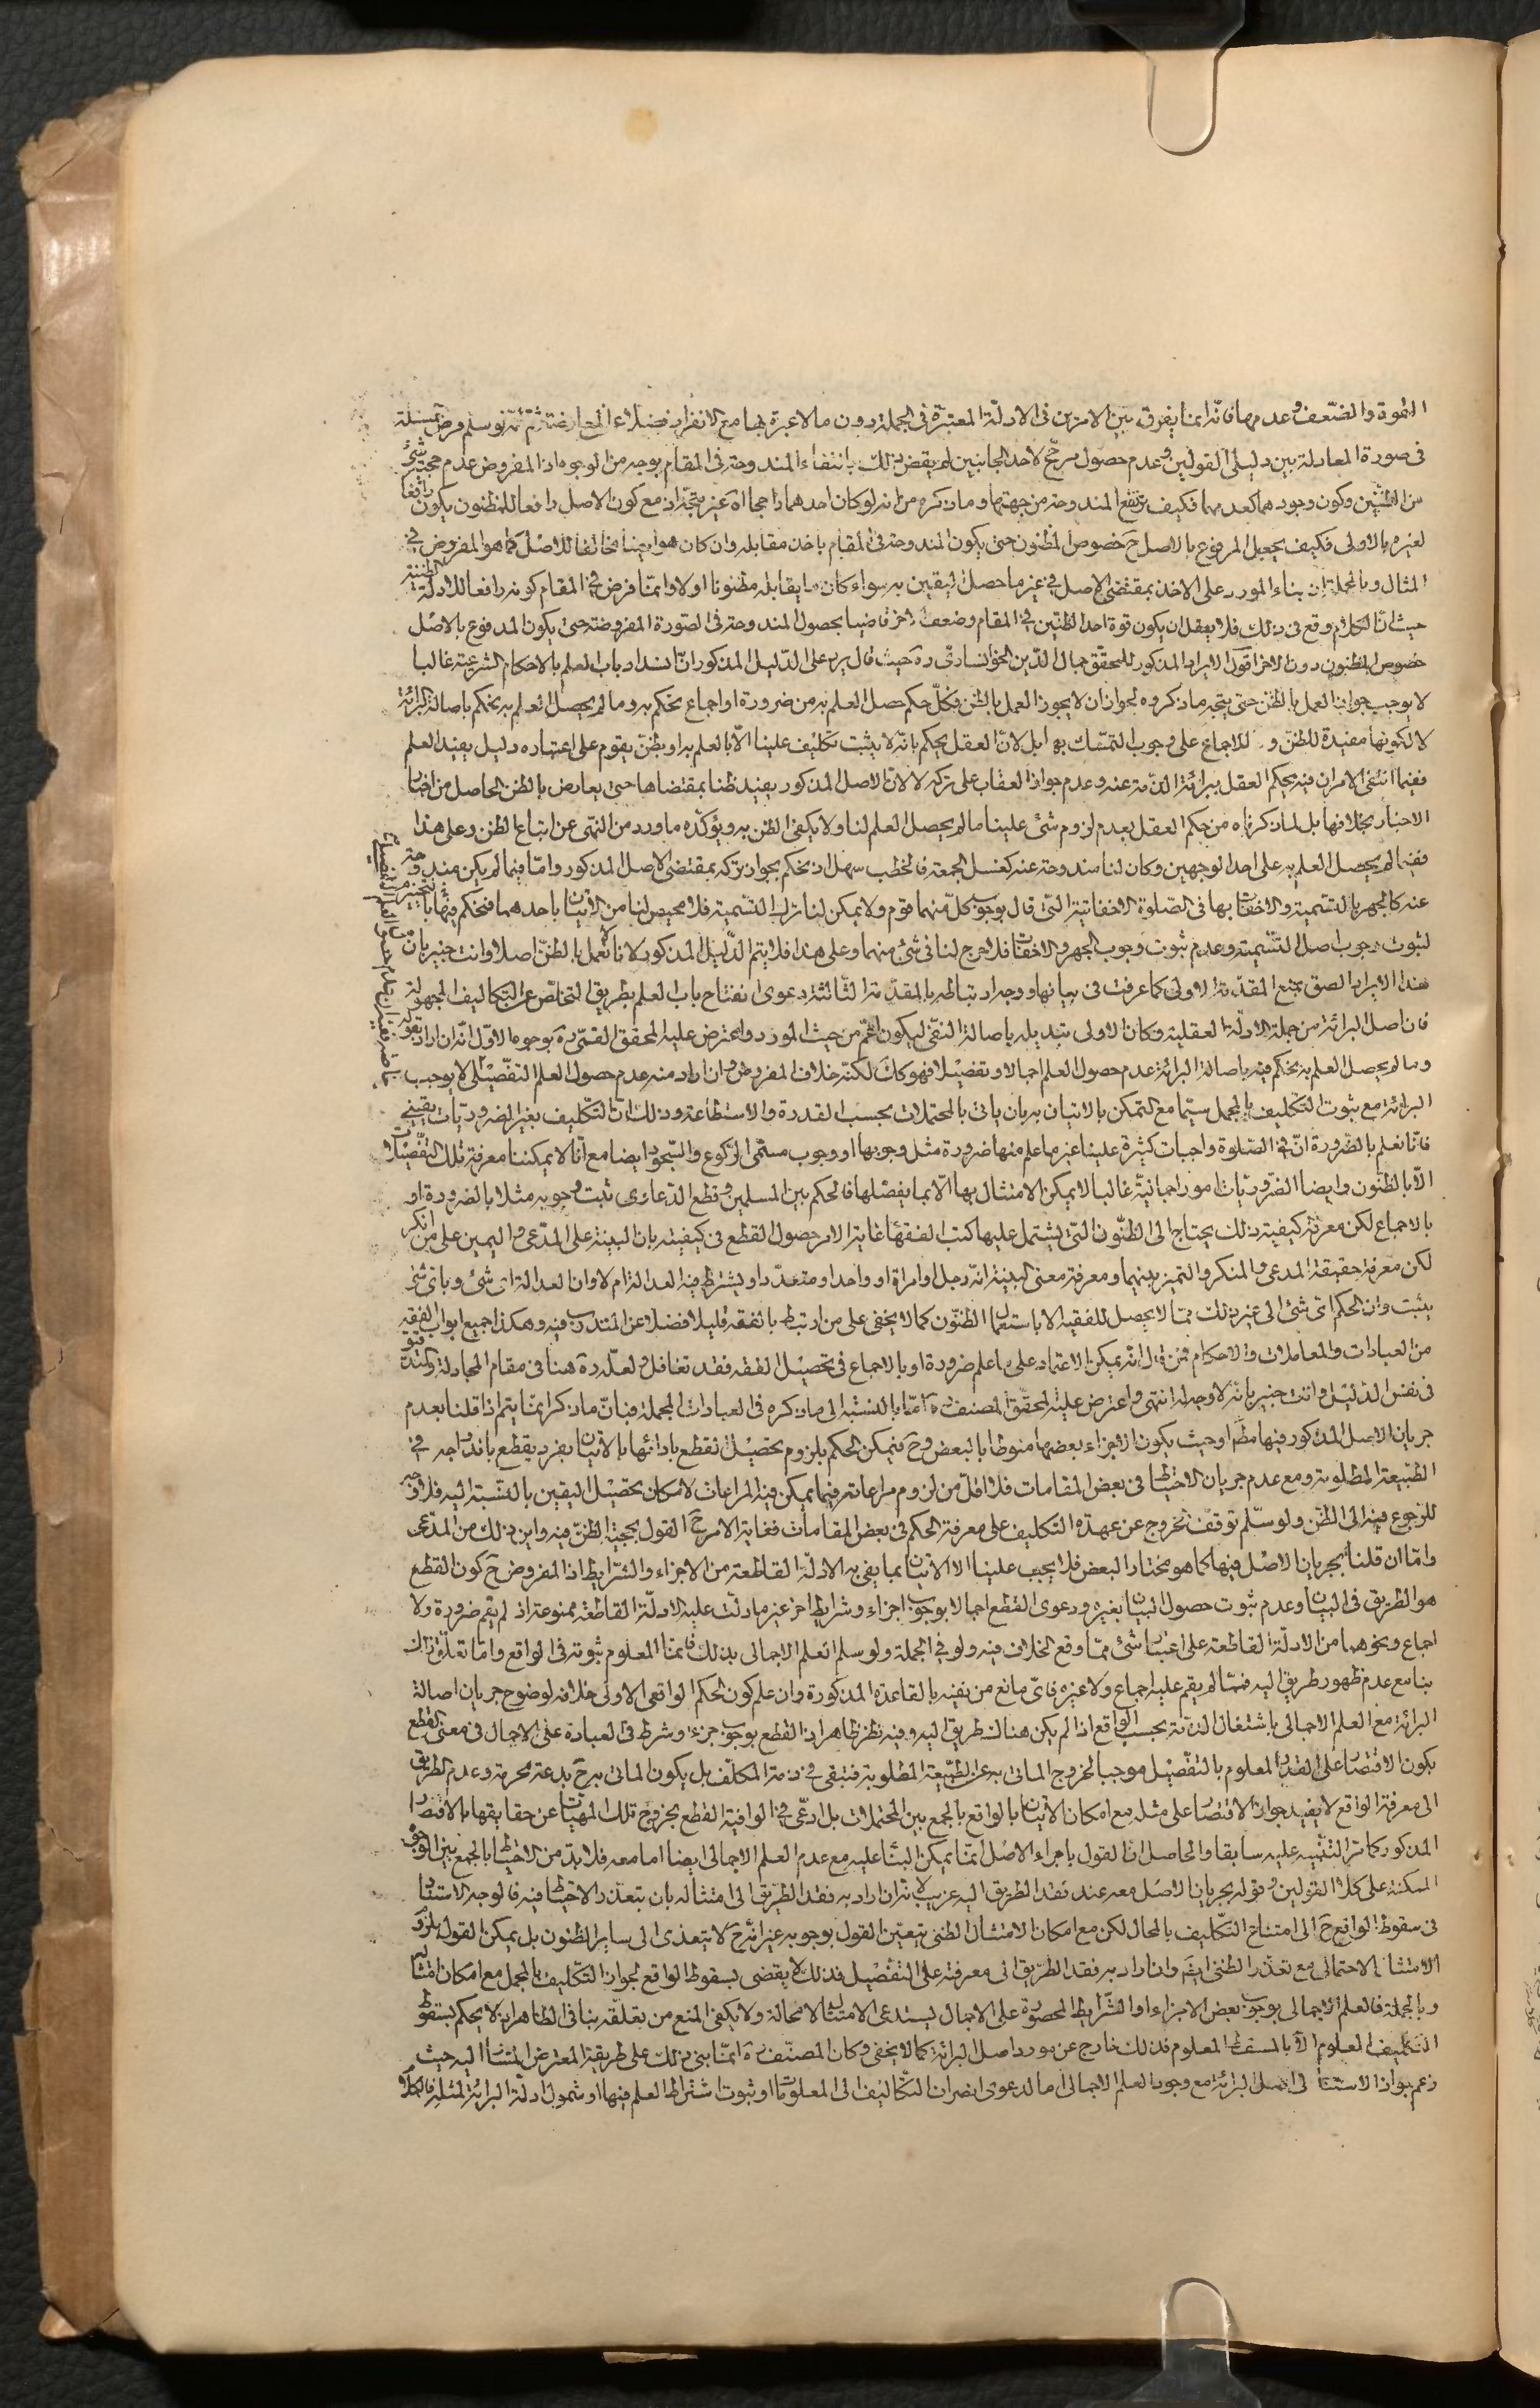 القوة والضعف وعدمها فانه انما يفرق بين الامرين فى الادلة المعتبرة فى الجملة دون ما لا عبرة بها مع الانفراد فضلا عن المعارضة ثم انه لو سلم فرض المسئلة
فى صورة المعادلة بين دليلى القولين وعدم حصول مرجح لاحد الجانبين لم يقض ذلك بانتفاء المندوحة فى المقام بوجه من الوجوه اذ المفروض عدم حجية شئ
من الظنين وكون وجودهما كعدمهما فكيف يرتفع المندوحة من جهتهما وما ذكره من انه لو كان احدهما راجحا اه غير متجه اذ مع كون الاصل دافعا للمظنون يكون دافعا
لغيره بالاولى فكيف يجعل المرفوع بالاصل ح خصوص المظنون حتى يكون المندوحة فى المقام باخذ مقابله وان كان هو ايضا مخالفا للاصل كما هو المفروض فى
المثال وبالجملة ان بناء المورد على الاخذ بمقتضى الاصل فى غير ما حصل اليقين به سواء كان ما يقابله مظنونا او لا وانما فرض فى المقام كونه دافعا للادلة الظنية
حيث ان الكلام وقع فى ذلك فلا يعقل ان يكون قوة احد الظنين فى المقام وضعف الاخر قاضيا بحصول المندوحة فى الصورة المفروضة حتى يكون المدفوع بالاصل
خصوص المظنون دون الاخر اقول الايراد المذكور للمحقق جمال الدين الخوانسارى ره حيث قال يرد على الدليل المذكور ان انسداد باب العلم بالاحكام الشرعية غالبا
لا يوجب جواز العمل بالظن حتى يتجه ما ذكروه لجواز ان لا يجوز العمل بالظن فكل حكم حصل العلم به من ضرورة او اجماع نحكم به وما لم يحصل العلم به نحكم باصالة البرائة
لا لكونها مفيدة للظن و للاجماع على وجوب التمسك بها بل لان العقل يحكم بانه لا يثبت تكليف علينا الا بالعلم به او بظن يقوم على اعتباره دليل يفيد العلم
ففيما انتفى الامران فيه يحكم العقل ببرائة الذمة عنه وعدم جواز العقاب على تركه لا لان الاصل المذكور يفيد ظنا بمقتضاها حتى يعارض بالظن الحاصل من اخبار
الاحاد بخلافها بل لما ذكرناه من حكم العقل بعدم لزوم شئ علينا ما لم يحصل العلم لنا ولا يكفى الظن به ويؤكده ما ورد من النهى عن اتباع الظن وعلى هذا
ففيما لم يحصل العلم به على احد الوجهين وكان لنا مندوحة عنه كغسل الجمعة فالخطب سهل اذ نحكم بجواز تركه بمقتضى الاصل المذكور واما فيما لم يكن مندوحة
عنه كالجهر بالتسمية والاخفات بها فى الصلوة الاخفاتية التى قال بوجوب كل منهما قوم ولا يمكن لنا ترك التسمية فلا محيص لنا من الاتيان باحدهما فنحكم فيها بالتخيير
لثبوت وجوب اصل التسمية وعدم ثبوت وجوب الجهر والاخفات فلا حرج لنا فى شئ منهما وعلى هذا فلا يتم الدليل المذكور لانا لا نعمل بالظن اصلا وانت خبير بان
هذا الايراد الصق بمنع المقدمة الاولى كما عرفت فى بيانها ووجه ارتباطه بالمقدمة الثالثة دعوى انفتاح باب العلم بطريق التخلص عن التكاليف المجهولة
فان اصل البرائة من جملة الادلة العقلية وكان الاولى تبديله باصالة النفى ليكون اعم من حيث المورد واعترض عليه المحقق القمى ره بوجوه الاول انه ان اراد بقوله
وما لم يحصل العلم به نحكم فيه باصالة البرائة عدم حصول العلم اجمالا وتفصيلا فهو كك لكنه خلاف المفروض وان اراد منه عدم حصول العلم التفصيلى لا يوجب
البرائة مع ثبوت التكليف بالمجمل سيما مع التمكن بالاتيان به بان ياتى بالمحتملات بحسب القدرة والاستطاعة وذلك ان التكليف بغير الضروريات يقينى
فانا نعلم بالضرورة ان فى الصلوة واجبات كثيرة علينا غير ما علم منها ضرورة مثل وجوبها او وجوب مسمى الركوع والسجود ايضا مع انا لا يمكننا معرفة تلك التفصيلات
الا بالظنون وايضا الضروريات امور اجمالية غالبا لا يمكن الامتثال بها الا بما يفصلها فالحكم بين المسلمين وقطع الدعاوى ثبت وجوبه مثلا بالضرورة او
بالاجماع لكن معرفة كيفية ذلك يحتاج الى الظنون التى يشتمل عليها كتب الفقهاء غاية الامر حصول القطع فى كيفيته بان البينة على المدعى واليمين على من انكر
لكن معرفة حقيقة المدعى والمنكر والتميز بينهما ومعرفة معنى البينة انه رجل او امراة او واحد او متعدد او يشترط فيه العدالة ام لا وان العدالة اى شئ وباى شئ
يثبت وان الحكم اى شئ الى غير ذلك مما لا يحصل للفقيه الا باستعمال الظنون كما لا يخفى على من ارتبط بالفقه قليلا فضلا عن المتدرب فيه وهكذا جميع ابواب الفقه
من العبادات والمعاملات والاحكام فمن قال انه يمكن الاعتماد على ما علم ضرورة او بالاجماع فى تحصيل الفقه فقد تغافل ولعله ره هنا فى مقام المجادلة والتدقيق
فى نفس الدليل وانت خبير بانه لا وجه له انتهى واعترض عليه المحقق المصنف ره اما بالنسبة الى ما ذكره فى العبادات المجملة فبان ما ذكر انما يتم اذا قلنا بعدم
جريان الاصل المذكور فيها مط او حيث يكون الاجزاء بعضها منوطا بالبعض وح فيمكن الحكم بلزوم تحصيل القطع بادائها بالاتيان بفرد يقطع باندراجه فى
الطبيعة المطلوبة ومع عدم جريان الاحتياط فى بعض المقامات فلا اقل من لزوم مراعاته فيما يمكن فيه المراعات لامكان تحصيل اليقين بالنسبة اليه فلا وجه
للرجوع فيه الى الظن ولو سلم توقف الخروج عن عهدة التكليف على معرفة الحكم فى بعض المقامات فغاية الامر ح القول بحجية الظن فيه واين ذلك من المدعى
واما ان قلنا بجريان الاصل فيها كما هو مختار البعض فلا يجب علينا الا الاتيان بما يفى به الادلة القاطعة من الاجزاء والشرايط اذ المفروض ح كون القطع
هو الطريق فى البيان وعدم ثبوت حصول البيان بغيره ودعوى القطع اجمالا بوجوب اجزاء وشرايط اخر غير ما دلت عليه الادلة القاطعة ممنوعة اذ لم يقم ضرورة ولا
اجماع ونحوهما من الادلة القاطعة على اعتبار شئ مما وقع الخلاف فيه ولو فى الجملة ولو سلم العلم الاجمالى بذلك فانما المعلوم ثبوته فى الواقع واما تعلق ذلك
بنا مع عدم ظهور طريق اليه فمما لم يقم عليه اجماع ولا غيره فاى مانع من نفيه بالقاعدة المذكورة وان علم كون الحكم الواقعى الاولى خلافه لوضوح جريان اصالة
البرائة مع العلم الاجمالى باشتغال الذمة بحسب الواقع اذا لم يكن هناك طريق اليه وفيه نظر ظاهر اذ القطع بوجوب جزء وشرط فى العبادة على الاجمال فى معنى القطع
بكون الاقتصار على القدر المعلوم بالتفصيل موجبا لخروج الماتى به عن الطبيعة المطلوبة فتبقى فى ذمة المكلف بل يكون الماتى به ح بدعة محرمة وعدم الطريق
الى معرفة الواقع لا يفيد جواز الاقتصار على مثله مع امكان الاتيان بالواقع بالجمع بين المحتملات بل ادعى فى الوافية القطع بخروج تلك المهيات عن حقايقها بالاقتصار
المذكور كما مر التنبيه عليه سابقا والحاصل ان القول باجراء الاصل انما يمكن البناء عليه مع عدم العلم الاجمالى ايضا اما معه فلا بد من الاحتياط بالجمع بين الوجوه
الممكنة على كلا القولين وقوله بجريان الاصل معه عند فقد الطريق اليه غريب لانه ان اراد به فقد الطريق الى امتثاله بان يتعذر الاحتياط فيه فالوجه الاستناد
فى سقوط الواقع ح الى امتناع التكليف بالمحال لكن مع امكان الامتثال الظنى يتعين القول بوجوبه غير انه ح لا يتعدى الى ساير الظنون بل يمكن القول بلزوم
الامتثال الاحتمالى مع تعذر الظنى ايضا وان اراد به فقد الطريق الى معرفته على التفصيل فذلك لا يقضى بسقوط الواقع لجواز التكليف بالمجمل مع امكان امتثاله
وبالجملة فالعلم الاجمالى بوجوب بعض الاجزاء او الشرايط المحصورة على الاجمال يستدعى الامتثال لا محالة ولا يكفى المنع من تعلقه بنا فى الظاهر اذ لا يحكم بسقوط
التكليف المعلوم الا بالمسقط المعلوم فذلك خارج عن مورد اصل البرائة كما لا يخفى وكان المصنف ره انما بنى ذلك على طريقة المعترض المشار اليه حيث
زعم جواز الاستناد الى اصل البرائة مع وجود العلم الاجمالى اما لدعوى انصراف التكاليف الى المعلومات او ثبوت اشتراط العلم فيها او شمول ادلة البرائة لمثله فالكلام